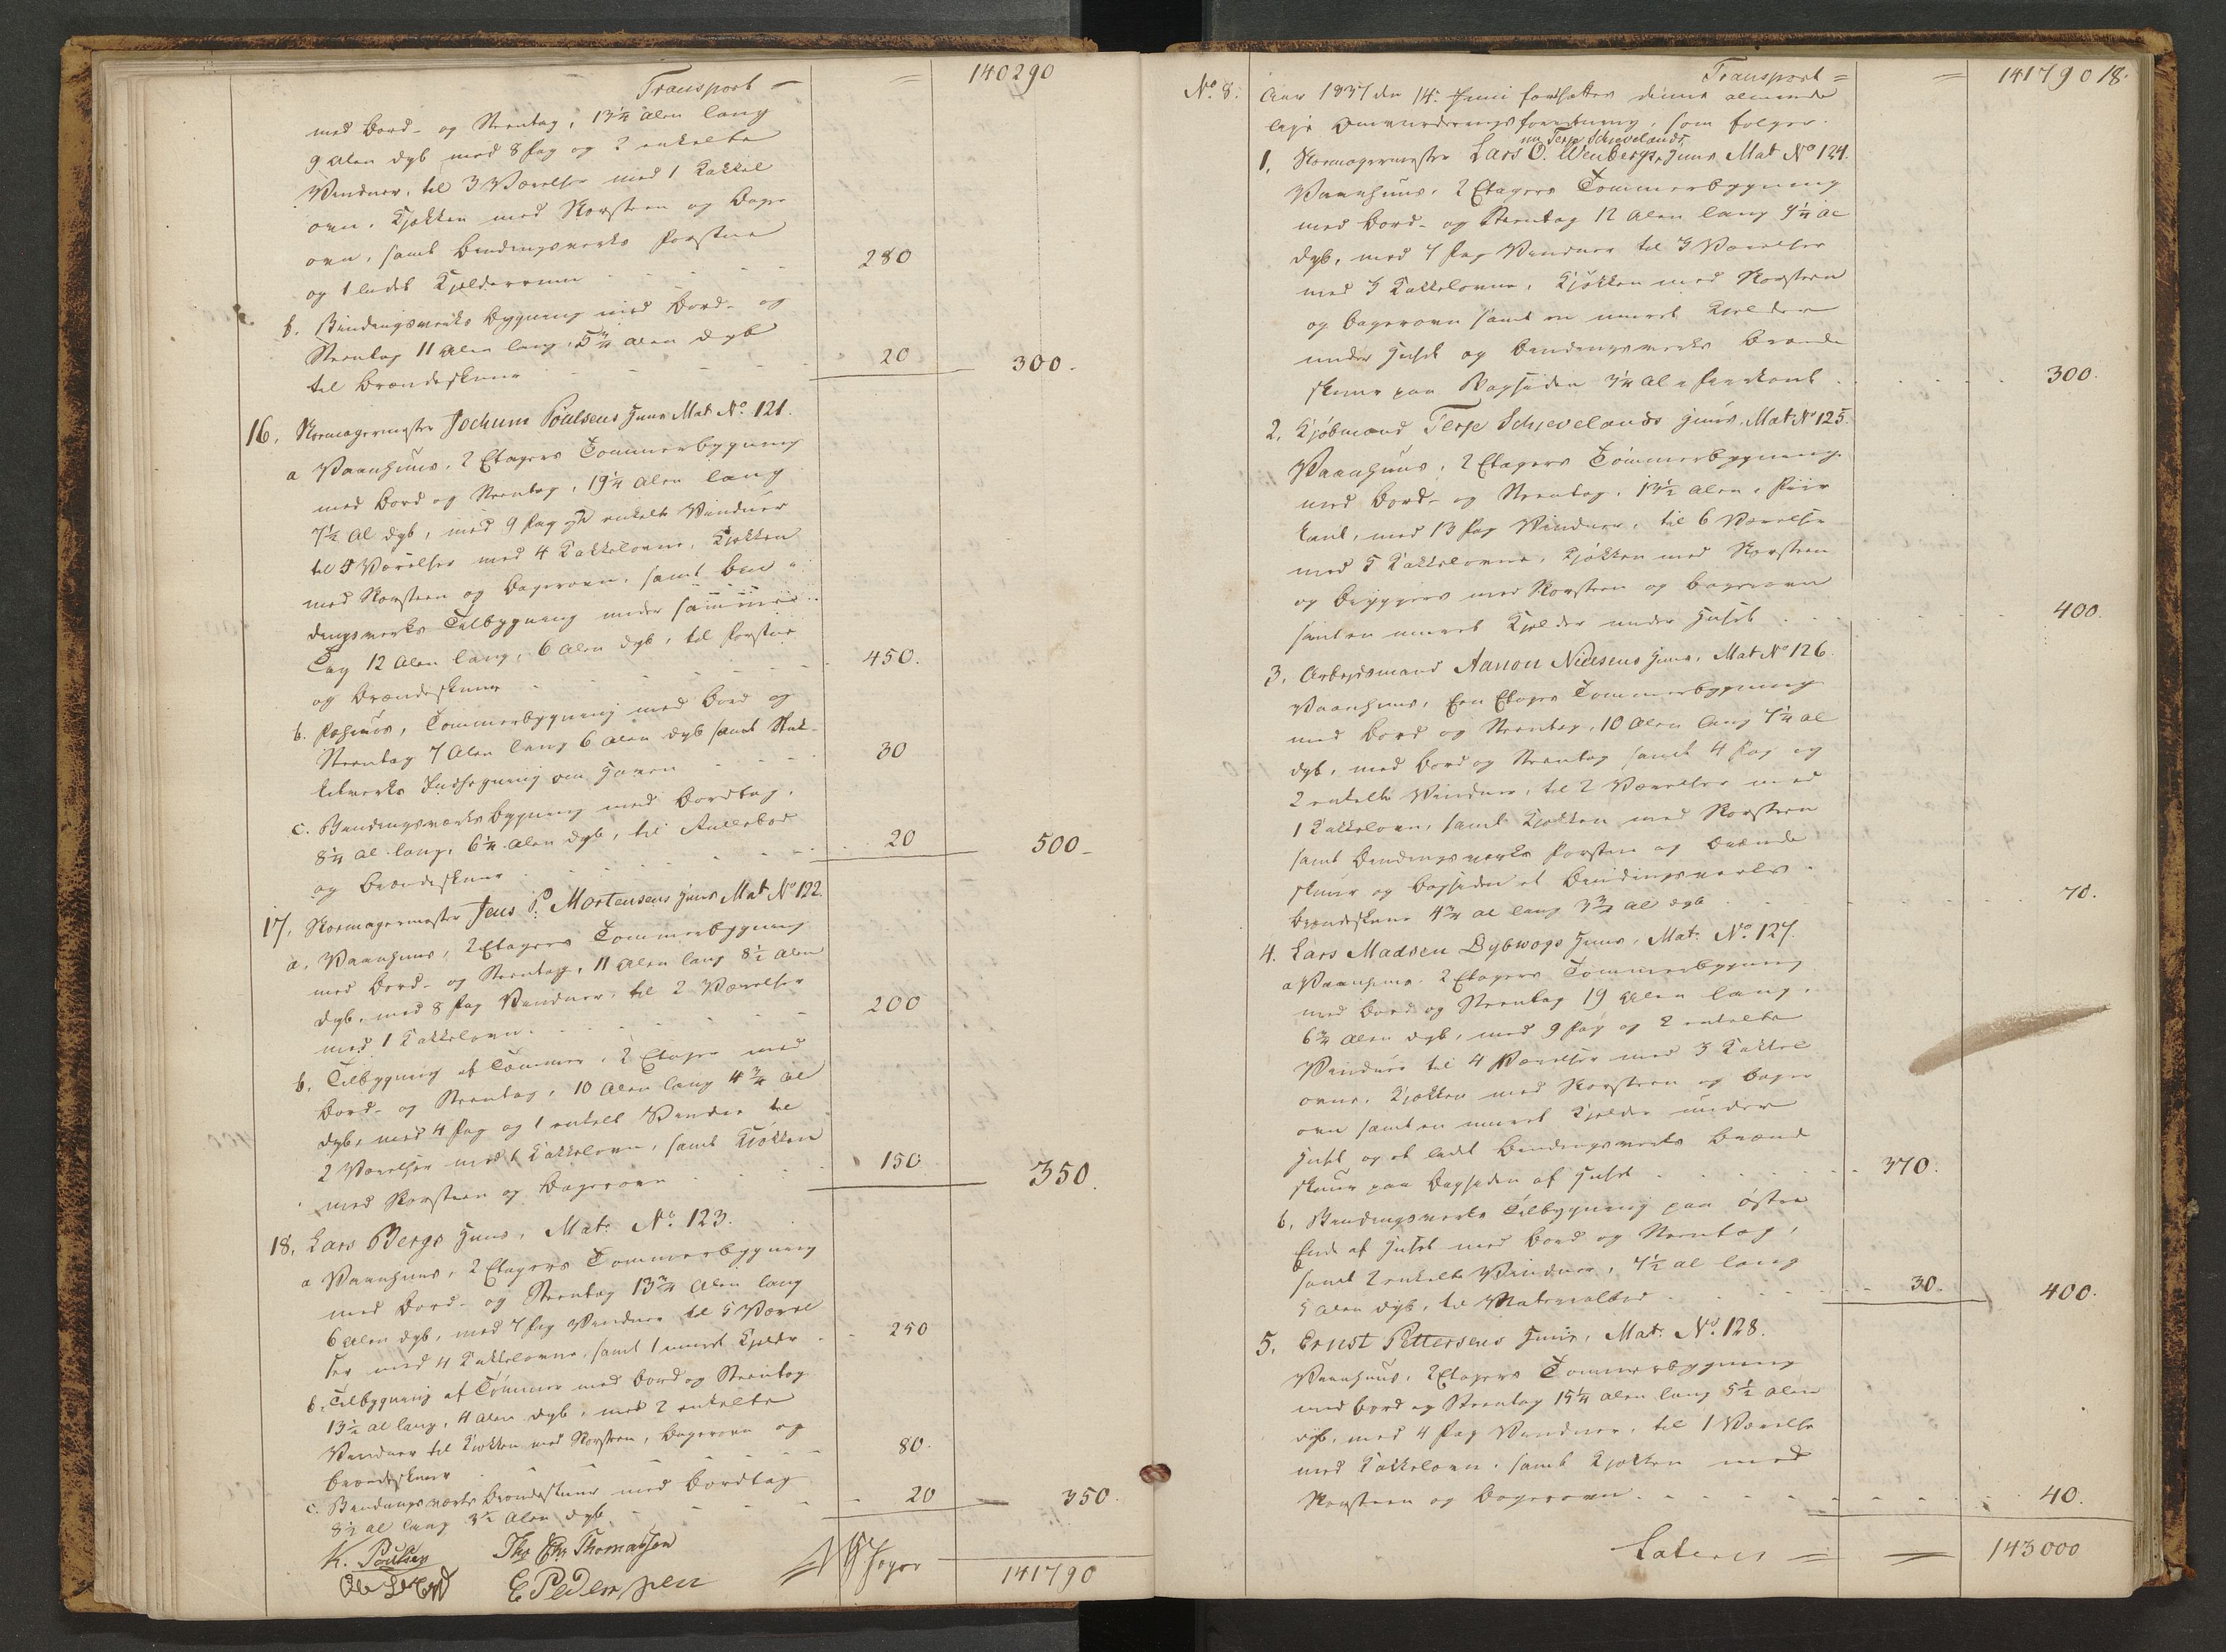 Transport = = 140290
med Bord- og Steentag, 13 1/4 Alen lang
9 Alen dyb med 8 Fag og 2 enkelte
Vinduer, til 3 Værelser med 1 Kakkel
ovn, Kjøkken med Skorsteen og Bager
ovn, samt Bindingsværks Forstue
og 1 lidet Kjelderrum 280
b. Bindingsværks Bygning med Bord- og
Steentag 11 Alen lang, 5 3/4 Alen dyb
til Brændeskuur 20 300.
16. Skomagermester Jochum Poulsens Huus Mat No. 121.
a Vaanhuus, 2 Etagers Tømmerbygning
med Bord og Steentag, 19 1/4 Alen lang
7 1/2 Al dyb, med 9 Fag og enkelt Vinduer
til 5 Værelser med 4 Kakkelovne, Kjøkken
med Skorsteen og Bagerovn, samt Bin-
dingsværks Tilbygning under samme
Tag 12 Alen lang, 6 Alen dyb, til Forstue
og Brændeskuur 450.
b. Søhuus, Tømmerbygning med Bord og
Steentag 7 Alen lang 6 Alen dyb samt Stak-
kitværks Indhegning om Haven 30
c. Bindingsværks Bygning med Bordtag,
8 1/4 Al lang, 6 1/4 Alen dyb, til Rullebod
og Brændeskuur 20 500-
17. Skomagermester Jens P. Mortensens Huus Mat No 122.
a. Vaanhuus, 2 Etagers Tømmerbygning
med Bord- og Steentag, 11 Alen lang 8 1/2 Alen
dyb, med 8 Fag Vinduer, til 2 Værelser
med 1 Kakkelovn. 200
b. Tilbygning af Tømmer, 2 Etager med
Bord- og Steentag, 10 Alen lang 4 3/4 Al
dyb, med 4 Fag og 1 enkelt Vindue til
2 Værelser med 1 Kakkelovn, samt Kjøkken
med Skorsteen og Bagerovn 150 350.
18. Lars Bergs Huus, Mat: No. 123.
a Vaanhuus, 2 Etagers Tømmerbygning
med Bord- og Steentag 13 3/4 Alen lang
6 Alen dyb, med 7 Fag Vinduer til 5 Værel
ser med 4 Kakkelovne, samt 1 muret Kjelder 250
b. Tilbygning af Tømmer med Bord og Steentag
13 1/2 Al lang, 4 Alen dyb, med 2 enkelte
Vinduer til Kjøkken med Skorsteen, Bagerovn og
Brændeskuur 80.
c. Bindingsværks Brændeskuur med Bordtag
8 1/2 Al lang 3 1/2 Alen dyb 20 350.
K. Poulsen Ths Chr Thomassen
E Pedersen 141790
No. 8. Transport = = 141790 18.
Aar 1837 den 14. Juni fortsattes denne alminde
lige Omvurderingsforretning, som følger.
nu Terje Schjevelands
1. Skomagermester Lars O. Wenbergs Huus Mat No 124.
Vaanhuus, 2 Etagers Tømmerbygning
med Bord- og Steentag 12 Alen lang 9 1/4 Al
dyb, med 7 Fag Vinduer til 3 Værelser
med 3 Kakkelovne, Kjøkken med Skorsteen
og Bagerovn samt en muret Kjelder
under Huset og Bindingsværks Brænde
skuur paa Bagsiden 3 1/4 Al i Fiirkant. 300.
2. Kjøbmand Terje Schjevelands Huus, Mat No 125.
Vaanhuus, 2 Etagers Tømmerbygning
med Bord- og Steentag, 13 1/2 Alen i Fiir
kant, med 13 Fag Vinduer, til 6 Værelser
med 5 Kakkelovne, Kjøkken med Skorsteen
og Bryggers med Skorsteen og Bagerovn
samt en muret Kjelder under Huset 400.
3. Arbeidsmand Aanon Nielsens Huus, Mat No 126
Vaanhuus, Een Etages Tømmerbygning
med Bord og Steentag, 10 Alen lang 7 1/4 Al
dyb, med Bord og Steentag samt 4 Fag og
2 enkelte Vinduer, til 2 Værelser med
1 Kakkelovn, samt Kjøkken med Skorsteen
samt Bindingsværks Forstue og Brænde
skuur og Bagsiden et Bindingsværks
Brændeskuur 4 3/4 Al lang 3 3/4 Al dyb 70.
4. Lars Madsen Dybwags Huus, Mat: No. 127.
a Vaanhuus, 2 Etagers Tømmerbygning
med Bord og Steentag 19 Alen lang,
6 3/4 Alen dyb, med 9 Fag og 2 enkelte
Vinduer til 4 Værelser med 3 Kakkel
ovne, Kjøkken med Skorsteen og Bager
ovn samt en muret Kjelder under
Huset og et lidet Bindingsværks Brænde
skuur paa Bagsiden af Huset 370.
b. Bindingsværks Tilbygning paa østre
Ende af Huset med Bord og Steentag,
samt 2 enkelte Vinduer, 7 1/2 Al lang
5 Alen dyb, til Materialbod 30. 400.
5. Ernst Pettersens Huus, Mat: No. 128.
Vaanhuus, 2 Etagers Tømmerbygning
med Bord og Steentag 15 1/4 Alen lang 5 1/2 Alen
dyb, med 4 Fag Vinduer, til 1 Værelse
med Kakkelovn, samt Kjøkken med
Skorsteen og Bagerovn. 40.
Lateris = = 143000